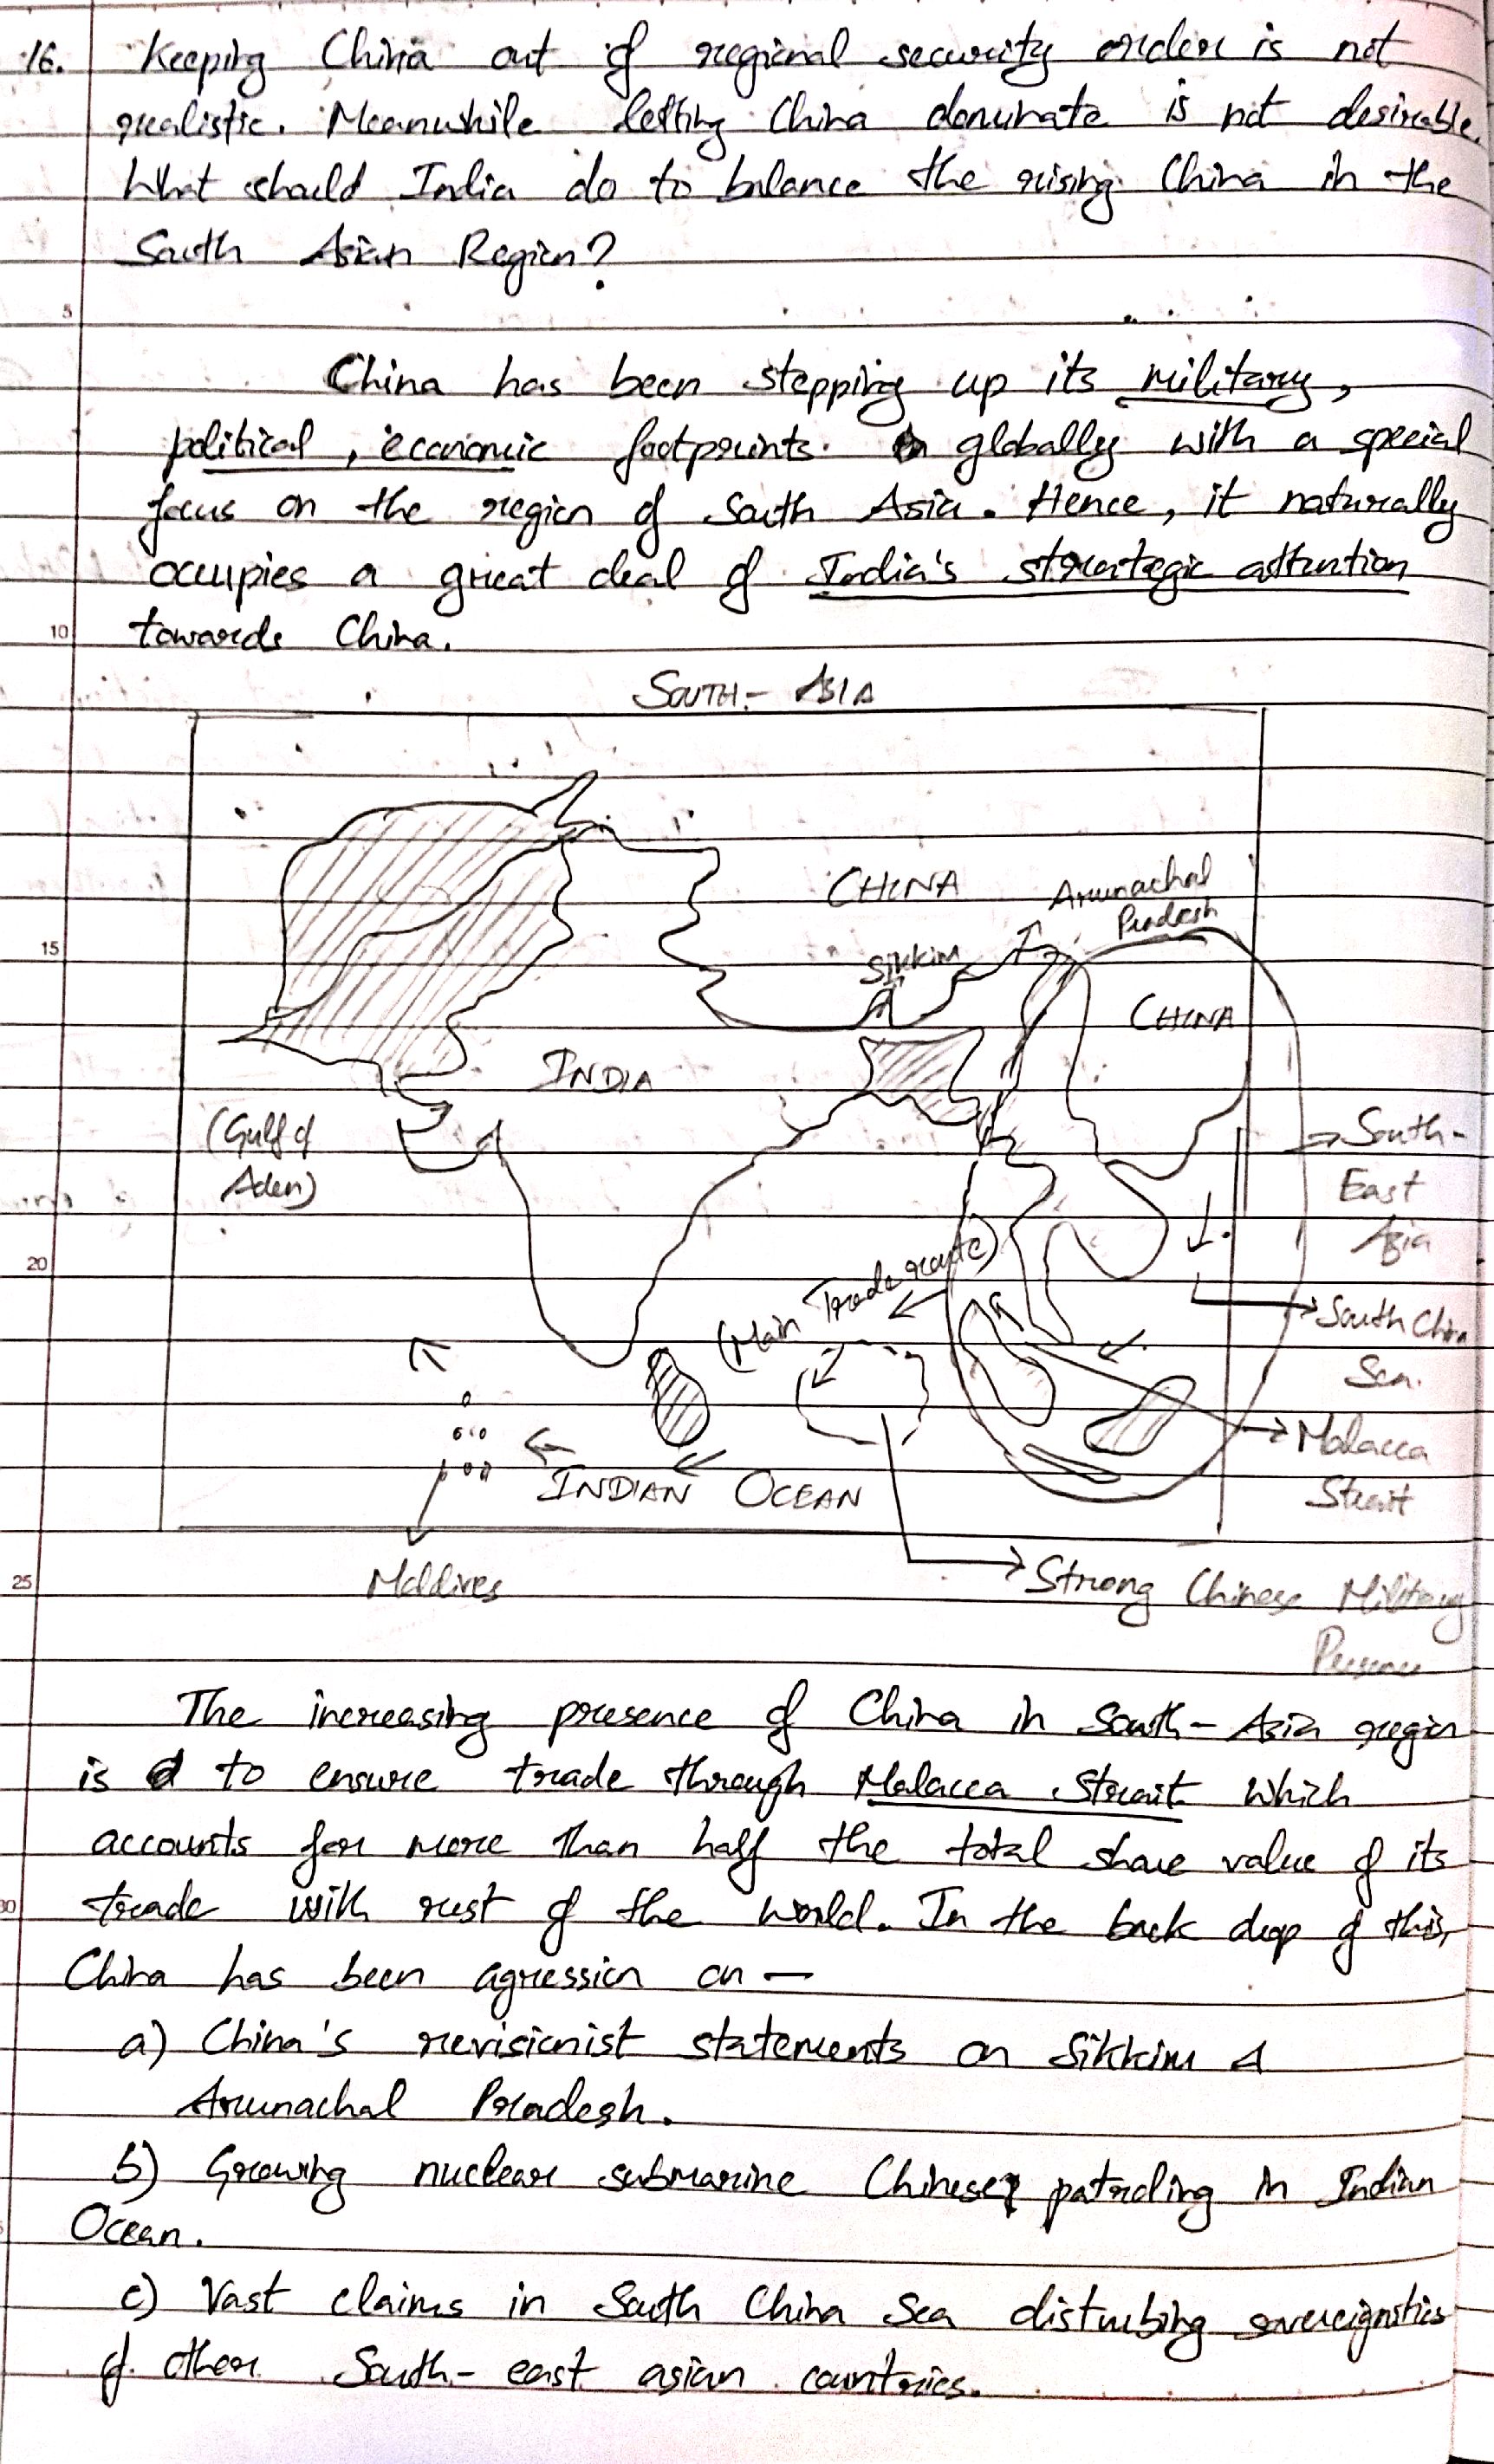 16. Keeping China out of regional security order is not
realistic. Meanwhile letting China dominate is not desirable.
What should India do to balance the rising China in the
South Asian Region?
5
China has been stepping up its military,
political, economic footprints. globally with a special
focus on the region of South Asia. Hence, it naturally
occupies a great deal of India's strategic attention
10 towards China.
SOUTH - ASIA
CHINA
Arunachal
Pradesh
15
Sikkim
CHINA
INDIA
(Gulf of
Aden)
South-
East
Asia
20
(Main Trade route)
South China
Sea.
Malacca
Strait
INDIAN OCEAN
25
Maldives
Strong Chinese Military
Presence
The increasing presence of China in South-Asia region
is to ensure trade through Malacca Strait which
accounts for more than half the total share value of its
30 trade with rest of the world. In the back drop of this,
China has been agression on —
a) China's revisionist statements on Sikkim &
Arunachal Pradesh.
b) Growing nuclear submarine Chinese patroling in Indian
Ocean.
c) Vast claims in South China Sea disturbing sovereignities
of other South-east asian countries.